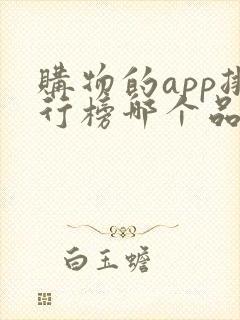 購物的app排
行榜哪个品
白玉蟾